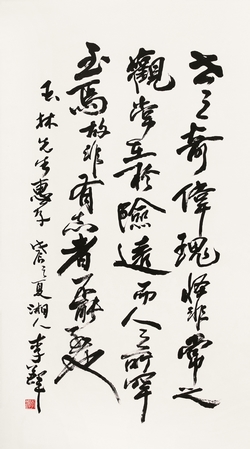 世之奇偉瑰怪非常之
觀常在於險遠而人之所罕
至焉故非有志者不能至也
玉林先生惠存 之夏湘人李鐸